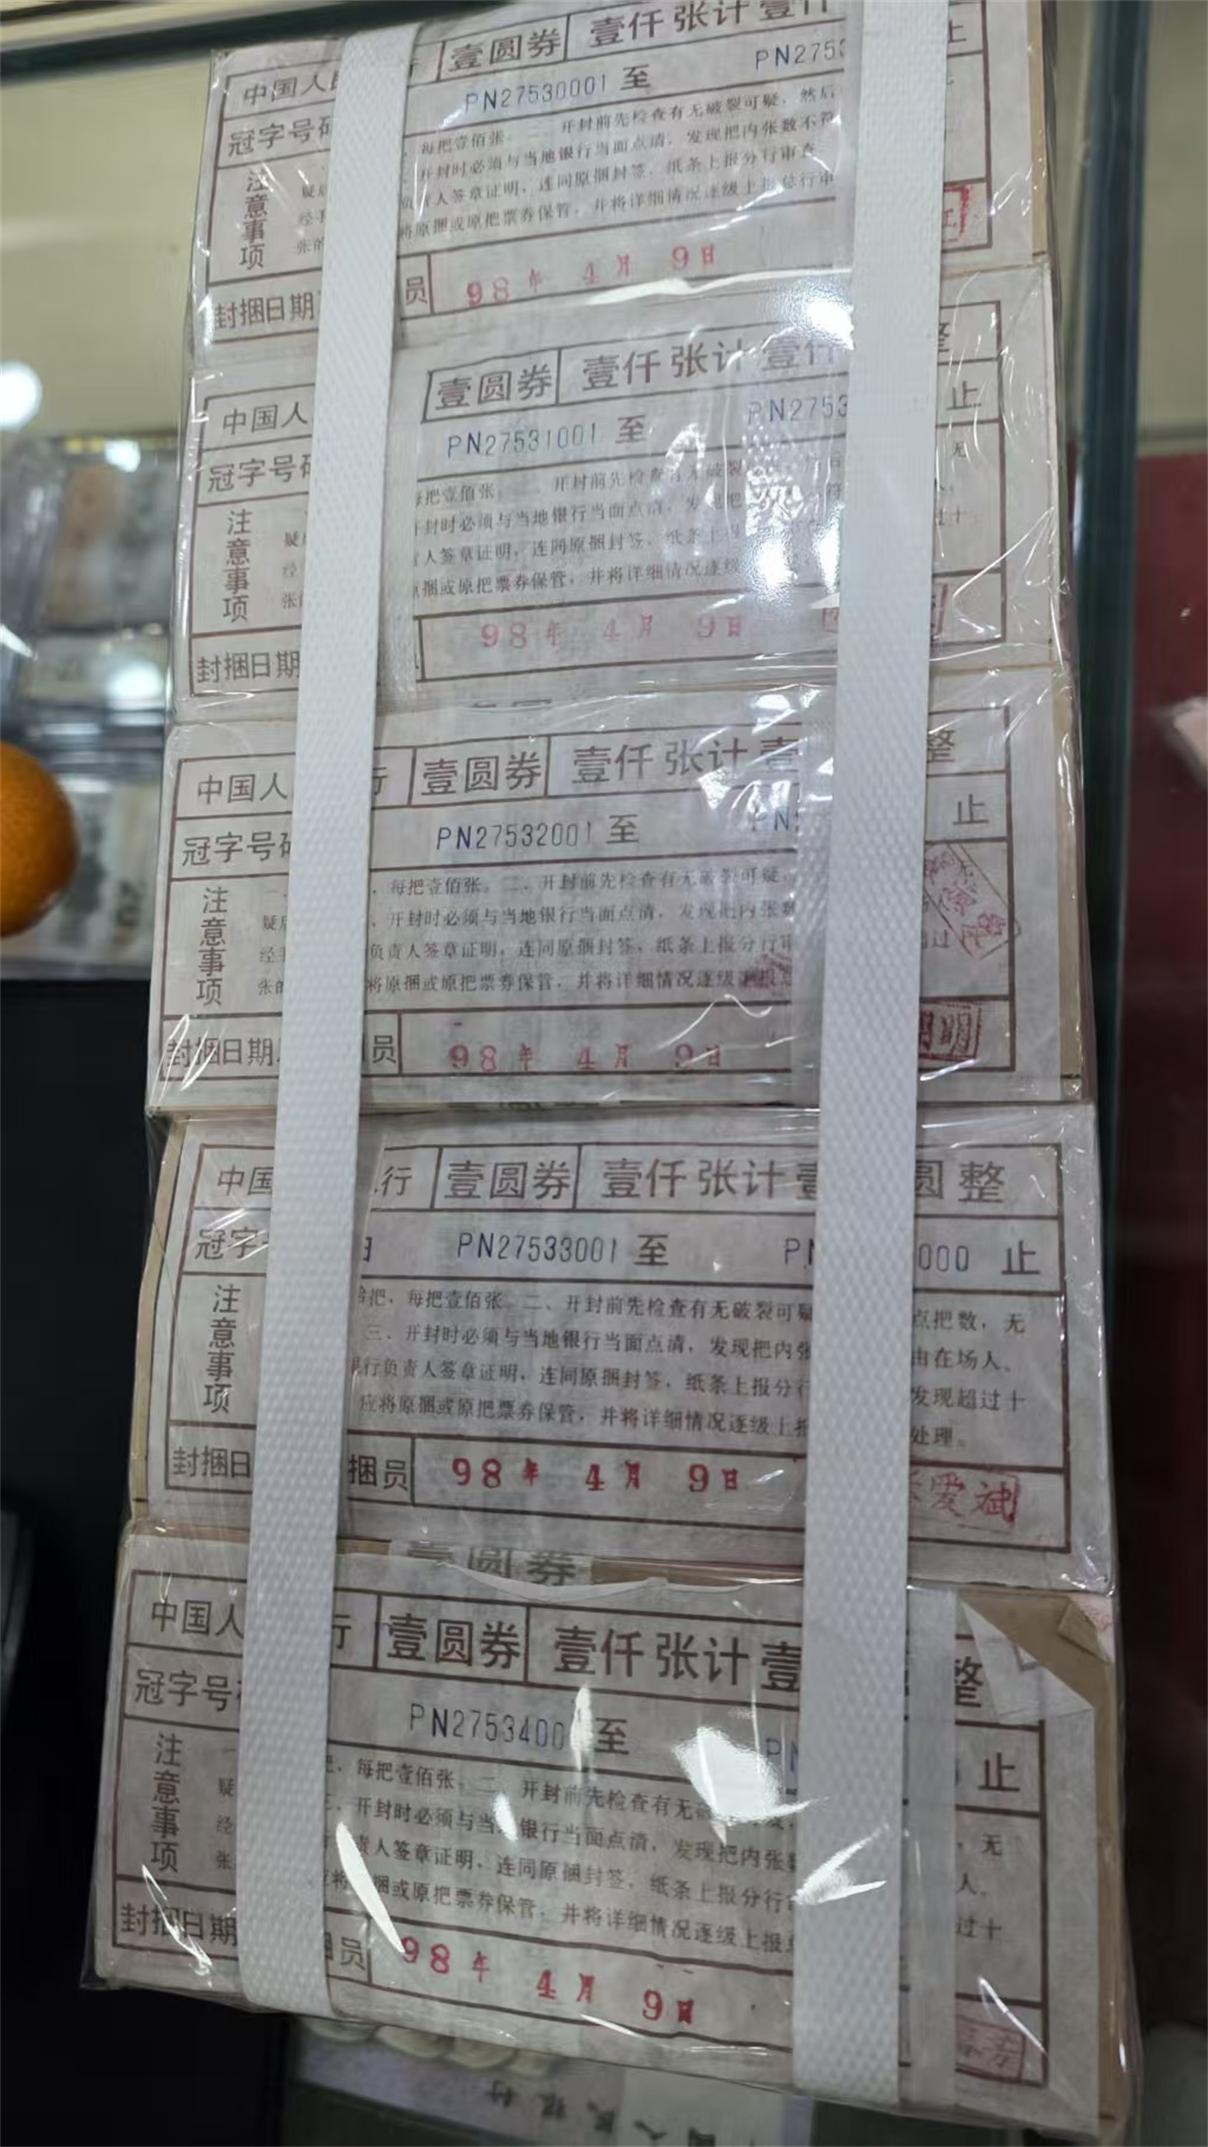 中国人民 行 壹圆券 壹仟张计壹仟
冠字号码 PN27530001 至 PN2753 止
注意事项
每把壹佰张。二、开封前先检查有无破裂可疑，然后
开封时必须与当地银行当面点清，发现把内张数不符
负责人签章证明，连同原捆封签、纸条上报分行审查
将原捆或原把票券保管，并将详细情况逐级上报总行审
封捆日期 员 98年 4月 9日
中国人 壹圆券 壹仟张计壹仟 整
冠字号码 PN27531001 至 PN2753 止
注意事项
每把壹佰张。二、开封前先检查有无破裂 无
开封时必须与当地银行当面点清，发现把 符
人签章证明，连同原捆封签、纸条上报 过十
原捆或原把票券保管，并将详细情况逐级
封捆日期 98年 4月 9日
中国人 行 壹圆券 壹仟张计壹 整
冠字号码 PN27532001 至 PN 止
注意事项
，每把壹佰张。二、开封前先检查有无破裂可疑， 无
疑 、开封时必须与当地银行当面点清，发现把内张数 人
经手 负责人签章证明，连同原捆封签，纸条上报分行审 过
张的 将原捆或原把票券保管，并将详细情况逐级上报总
封捆日期 员 98年 4月 9日 明
中国 行 壹圆券 壹仟张计壹 圆整
冠字 PN27533001 至 PN 000 止
注意事项
拾把，每把壹佰张。二、开封前先检查有无破裂可疑 点把数，无
三、开封时必须与当地银行当面点清，发现把内张 由在场人、
银行负责人签章证明，连同原捆封签，纸条上报分行 发现超过十
应将原捆或原把票券保管，并将详细情况逐级上报 处理。
封捆日 捆员 98年 4月 9日 爱斌
壹圆券
中国人 行 壹圆券 壹仟张计壹 整
冠字号码 PN2753400 至 PN 止
注意事项
把，每把壹佰张。二、开封前先检查有无破 ，无
疑 三、开封时必须与当 银行当面点清，发现把内张数 人、
经 责人签章证明，连同原捆封签，纸条上报分行 过十
张 应将 捆或原把票券保管，并将详细情况逐级上报
封捆日期 捆员 98年 4月 9日